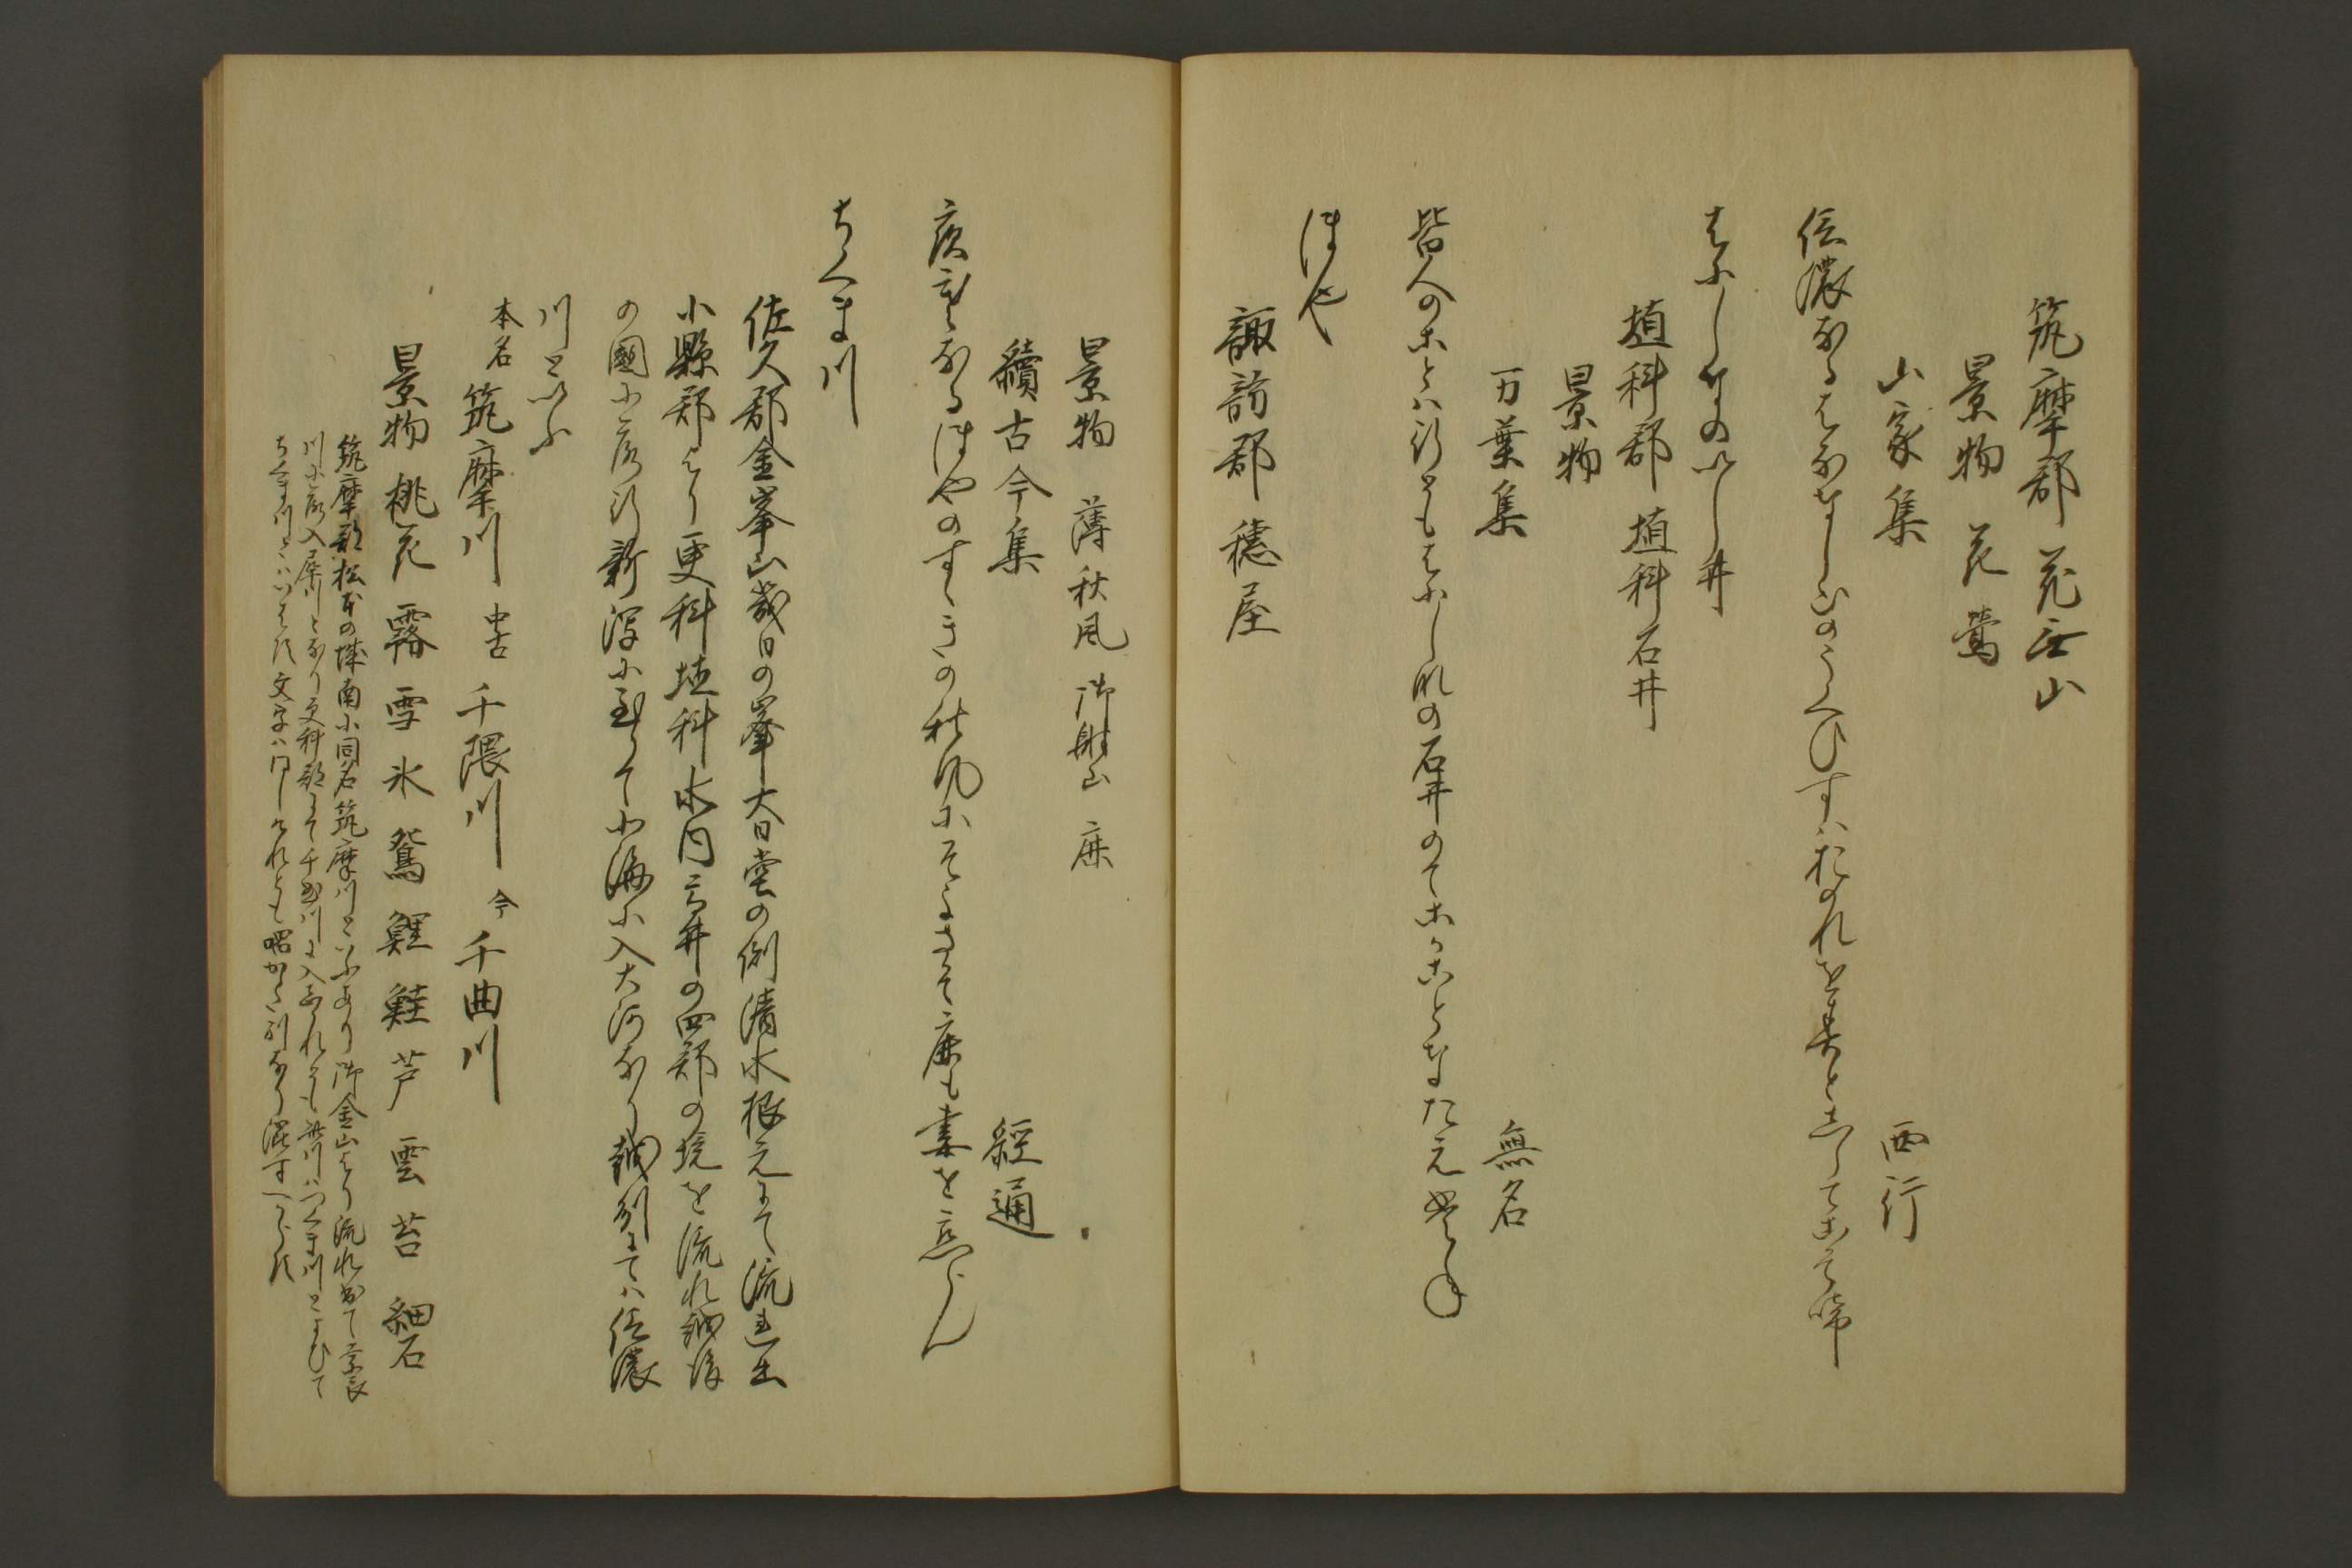 筑摩郡 花無山
景物 花 鶯
山家集 西行
信濃なるはななし山のうくひすはおのれを春としりてこそ啼
はにしなのいし井
埴科郡 埴科石井
景物
万葉集 無名
皆人のことは絶ともはにしなの石井のてこかことなたえそね
ほや
諏訪郡 穂屋
景物 薄 秋風 御射山 鹿
續古今集 經通
なるほやのすゝきの秋風にそよさそ鹿も妻を恋らん
ちくま川
佐久郡金峯山幾日の峯大日堂の側清水根元にて流れ出
小縣郡より更科埴科水内高井の四郡の境を流れ越後
の國に落行新潟に至りて小海に入大河なり越州にては信濃
川といふ
本名 筑摩川 中古 千隈川 今 千曲川
景物 桃花 霧 雪 氷 鴛 鯉 鮭 芦 雲 苔 細石
筑摩郡松本の城南に同名筑摩川といふあり御金山より流れ出て
川に落入犀川となり更科郡にて千曲川に入されとも此川はつくま川とよひて
ちくま川とはいはす文字は同しけれとも唱かた別なり混すへからす